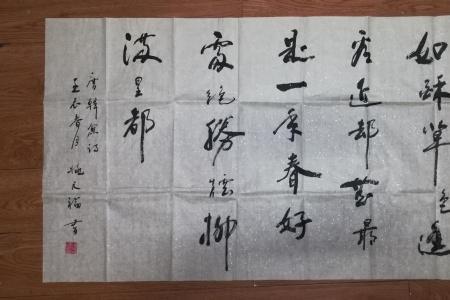 如酥草色遙
看近却無最
是一年春好
處絕勝煙柳
滿皇都
唐韓愈詩
春月
書